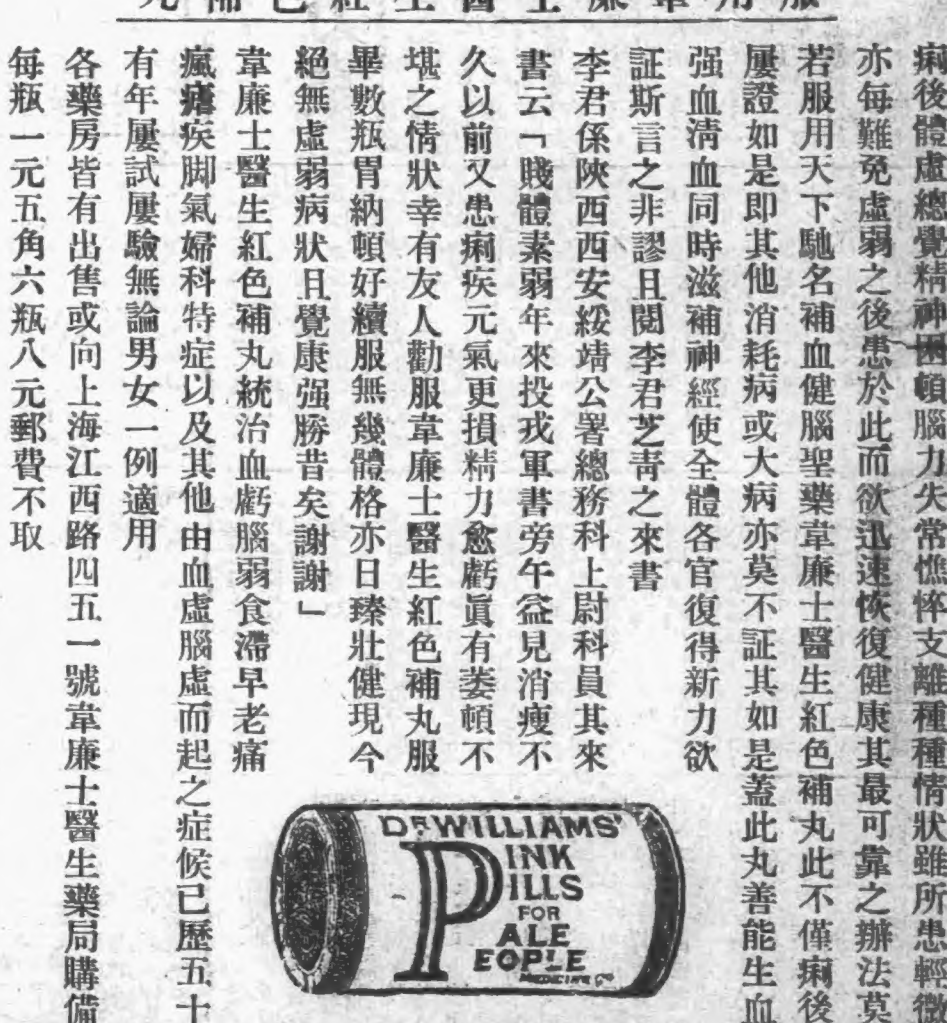 服用韋廉士醫生紅色補丸
痢後體虛總覺精神困頓腦力失常憔悴支離種種情狀雖所患輕微
亦每難免虛弱之後患於此而欲迅速恢復健康其最可靠之辦法莫
若服用天下馳名補血健腦聖藥韋廉士醫生紅色補丸此不僅痢後
屢證如是即其他消耗病或大病亦莫不証其如是蓋此丸善能生血
强血淸血同時滋補神經使全體各官復得新力欲
証斯言之非謬且閱李君芝靑之來書
李君係陝西西安綏靖公署總務科上尉科員其來
書云「賤體素弱年來投戎軍書旁午益見消瘦不
久以前又患痢疾元氣更損精力愈虧眞有萎頓不
堪之情狀幸有友人勸服韋廉士醫生紅色補丸服
畢數瓶胃納頓好續服無幾體格亦日臻壯健現今
絕無虛弱病狀日覺康强勝昔矣謝謝」
韋廉士醫生紅色補丸統治血虧腦弱食滯早老痛
瘋瘧疾脚氣婦科特症以及其他由血虛腦虛而起之症候已歷五十
有年屢試屢驗無論男女一例適用
各藥房皆有出售或向上海江西路四五一號韋廉士醫生藥局購備
每瓶一元五角六瓶八元郵費不取
DR WILLIAMS'
PINK
PILLS
FOR
PALE
PEOPLE
MEDICINE CO